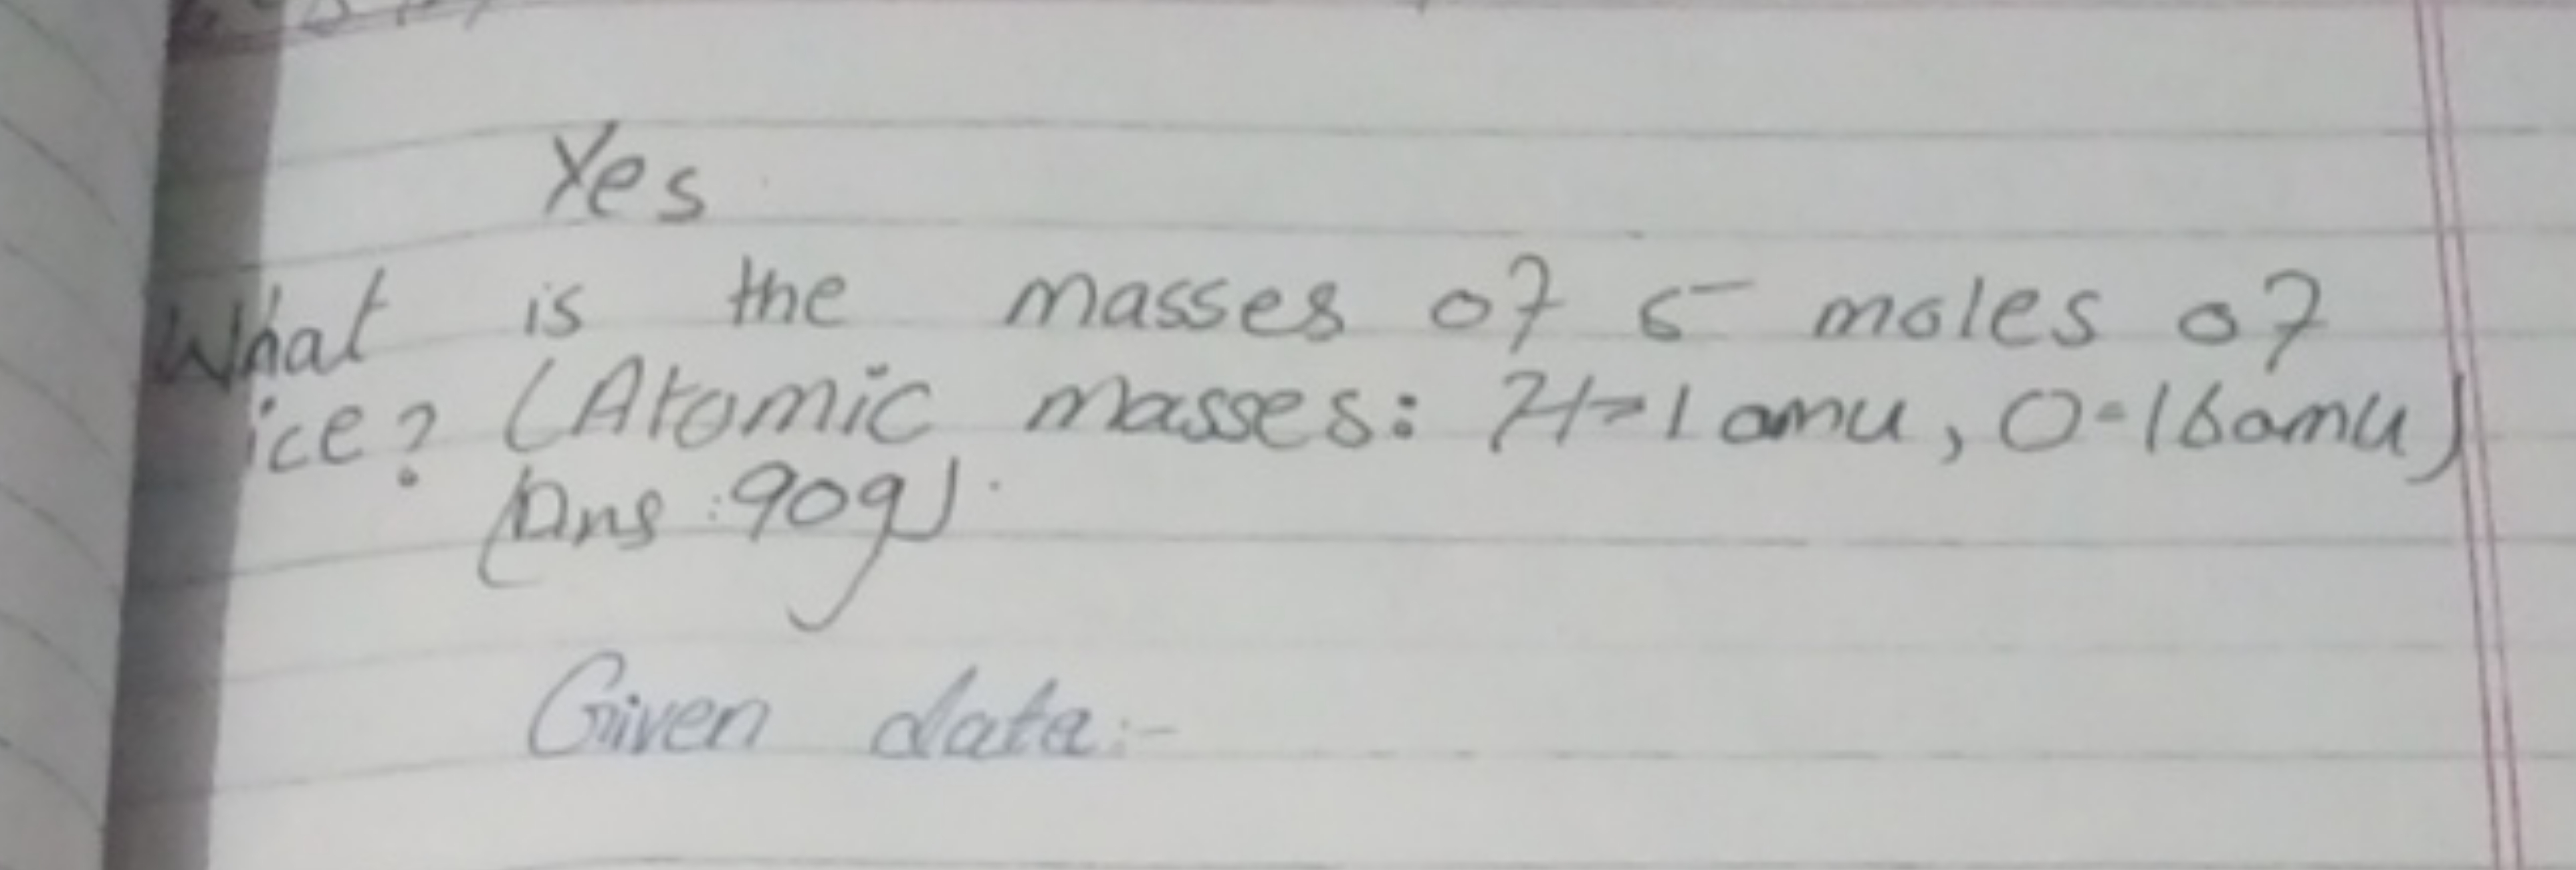 Yes
What is the masses of 5 moles of
ice? (Atomic masses: H=1 amu, O=16amu)
(Ans :90g).
Given data:-